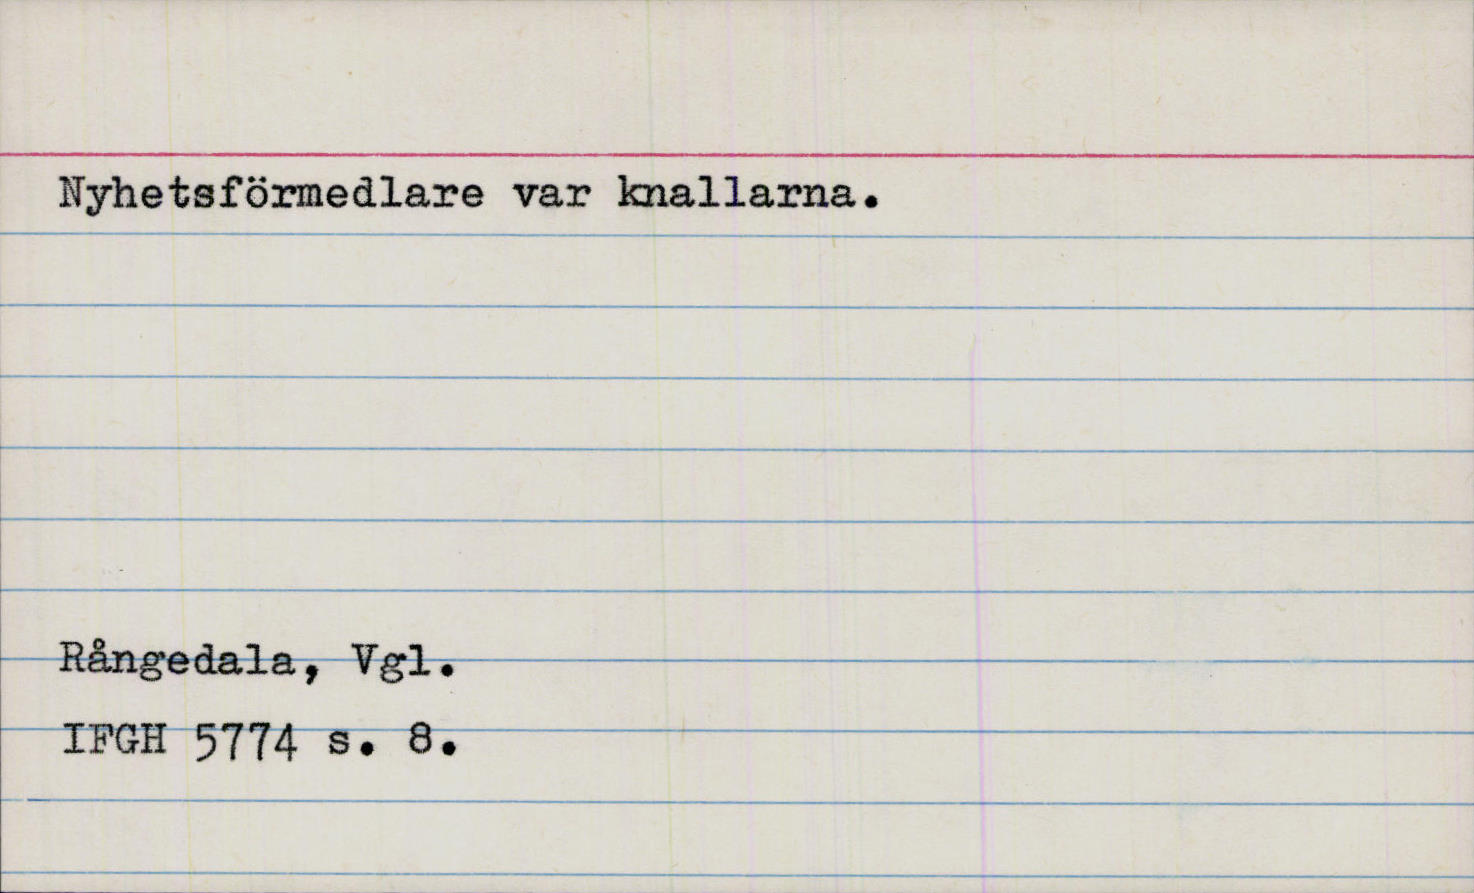 Nyhetsförmedlare var knallarna.
Rångedala, Vgl.
IFGH 5774 s. 8.